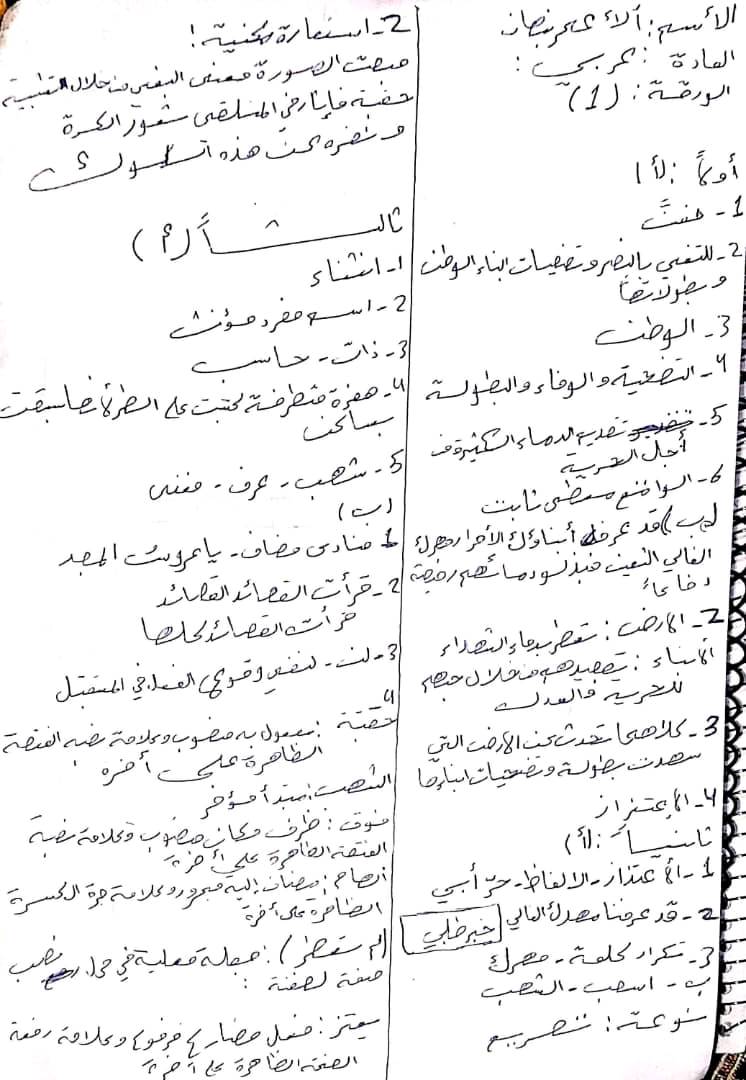 الأسم: آلاء عمر بنهان
المادة: عربي:
الورقة: (1)
أولاً: أ)
1- حفنة
2- للتغني بالنصر وتضحيات ابناء الوطن
وبطولاتها
3- الوطن
4- التضحية والوفاء والبطولة
5- تقديم الدماء الكثيرة في
أجل الحرية
6- الواضع معطى ثابت
(ب) قد عرف أبناؤك الأحرار مهرك
الغالي الثمين فبذلو دمائهم رخيصة
دفاعاً
2- الارض: تعطر بدماء الشهداء
الأبناء: تصميمهم من خلال حبهم
للحرية والعدل
3- كلاهما تحدث عن الارض التي
شهدت بطولة وتضحيات ابناءها
4- الإعتزاز
ثانياً: أ)
1- الأعتزاز - الالفاظ - حرّ أبي
2- قد عرفنا مهرك الغالي خبر طلبي
3- تكرار كلمة - مهرك
ب - اسهب - الشهب
نوعه: تصريع
2- استعارة مكنية:
منحت الصورة معنى
حفنة فإثار في المتلقي شعور الكره
ونفره من هذه السلوك
ثالثاً (أ)
1- انثناء
2- اسم مفرد مؤنث
3- ذات - حاسب
4- همزة متطرفة كتبت على السطر لأنها سبقت
بساكن
5- شهب - عرف - مغنى
(ب)
1 منادى مضاف - يا عروس المجد
2- قرأت القصائد القصائد
قرأت القصائد كلها
3- لن - لنفي وقوع الفعل في المستقبل
4
حقبة: مفعول به منصوب وعلامة نصبه الفتحة
الظاهرة على أخره
الشهب: مبتدأ مؤخر
فوق: ظرف مكان منصوب وعلامة نصبة
الفتحة الظاهرة على أخرة
الهام: مضاف إليه مجرور وعلامة جرة الكسرة
الظاهرة على أخرة
(لم تعطر): جملة فعلية في محل نصب
صفة لحفنة:
يعتز: فعل مضارع مرفوع وعلامة رفعة
الضمة الظاهرة على أخرة